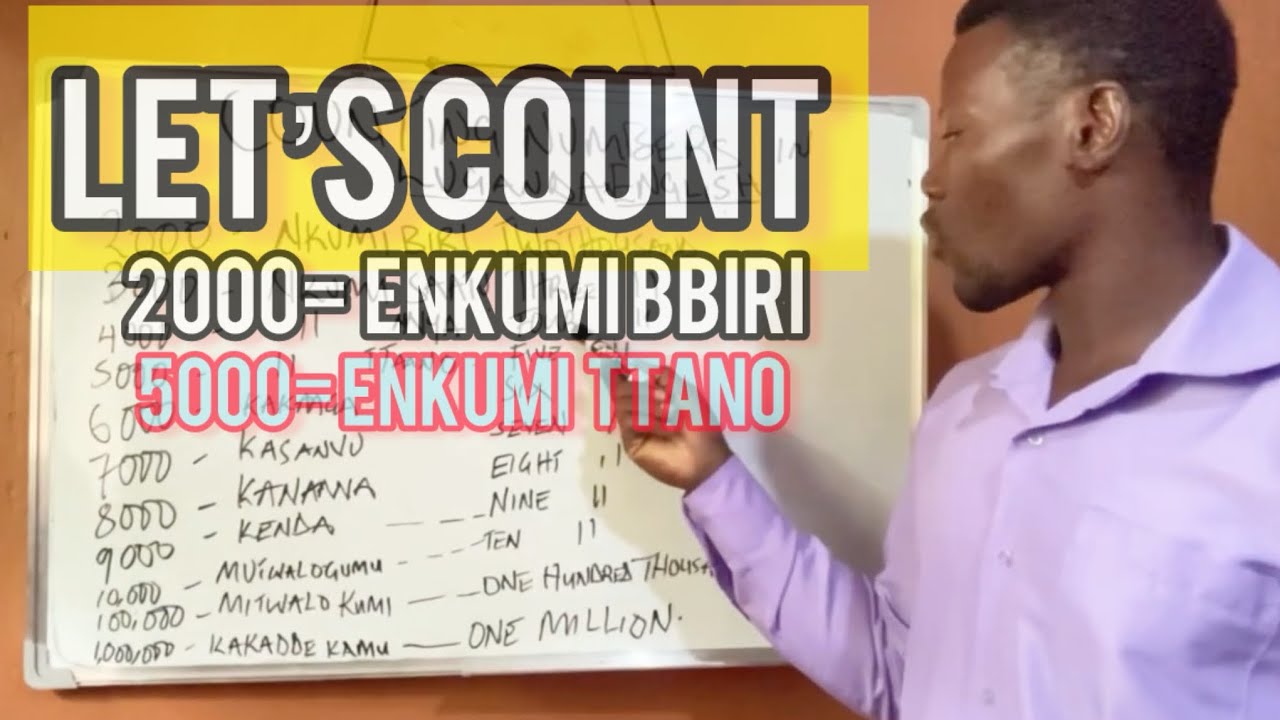 LET'S COUNT
COUNTING NUMBERS IN
LUGANDA ENGLISH
2000 - NKUMI BIRI TWO THOUSAND
2000= ENKUMI BBIRI
3000 - THREE
4000
5000= ENKUMI TTANO
5000 - TTANO - FIVE
6000 SIX
7000 - KASANVU SEVEN
8000 - KANANNA EIGHT 11
9000 - KENDA --- NINE 11
10,000 TEN 11
100,000 - MITWALO KUMI -- ONE HUNDRED
1,000,000 - KAKADDE KAMU — ONE MILLION.